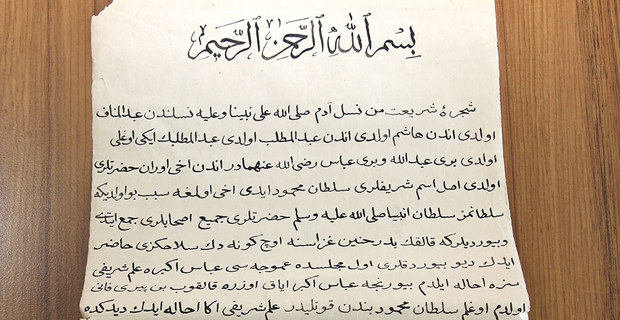 بسم الله الرحمن الرحيم
شجرهٔ شريعت من نسل آدم صلى الله على نبينا وعليه نسلندن عبد المناف
اولدى اندن هاشم اولدى اندن عبد المطلب اولدى عبد المطلبك ايكى اوغلى
اولدى برى عبد الله و برى عباس رضى الله عنهما در اندن اخى اوران حضرتلرى
اولدى اصل اسم شريفلرى سلطان محمود ايدى اخى اولمغه سبب بو اولديكه
سلطانمز سلطان انبيا صلى الله عليه وسلم حضرتلرى جميع اصحابلرى جمع ايتدى
و بيورديلركه قالقك بدر حنين غزاسنه اوچ كونه دك سلاحكزى حاضر
ايدك ديو بيوردقلرى اول مجلسده عموجه سى عباس اكبره علم شريفى
سزه احاله ايلدم بيورنجه عباس اكبر اياق اوزره قالقوب بن پيرى فانى
اولدم اوغلم سلطان محمود بندن قوتليدر علم شريفى اكا احاله ايلك ديدكده